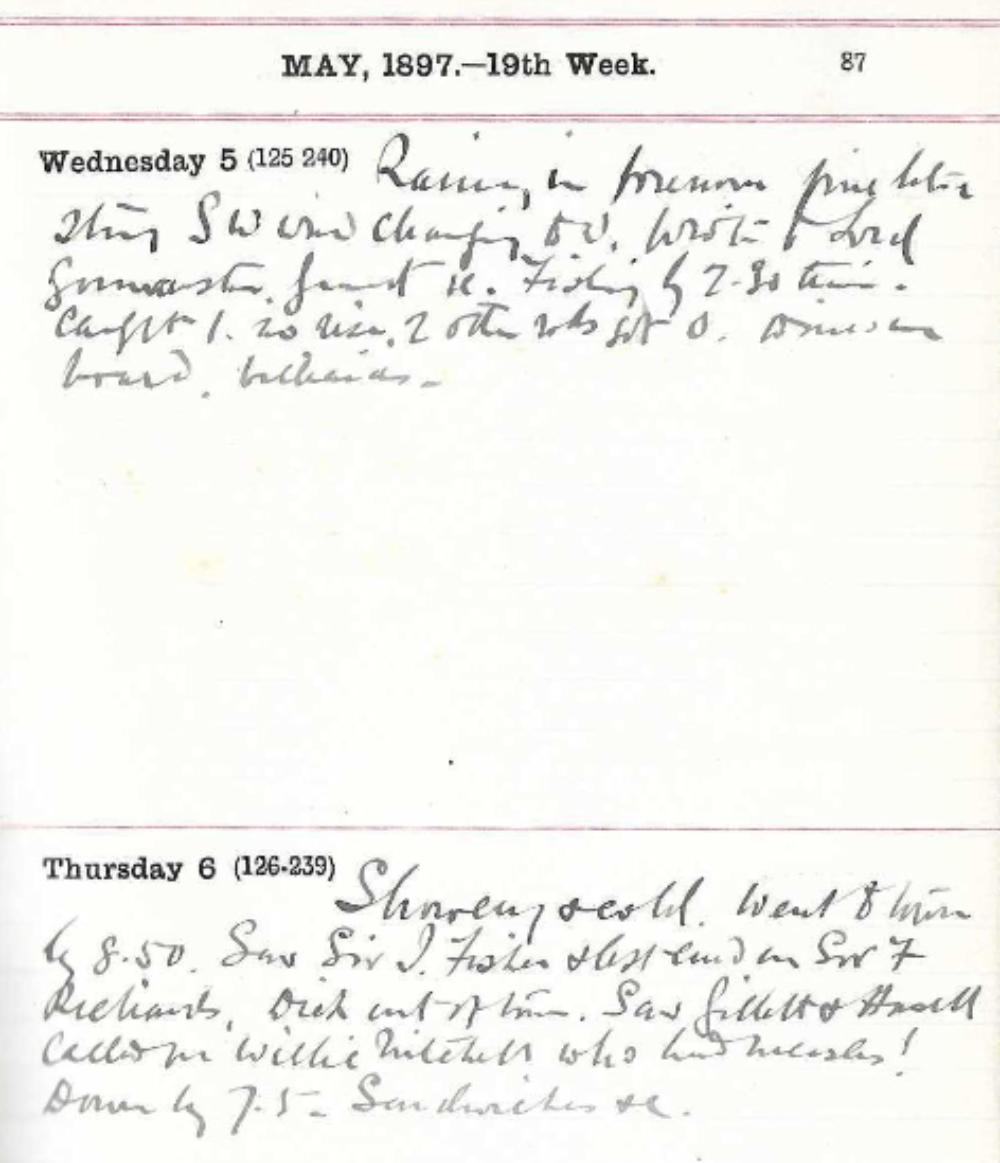 MAY, 1897.—19th Week. 87
Wednesday 5 (125 240) Rainy in forenoon fine later
Strong SW wind changing to W. Wrote to Lord
&c. Fishing by 2.30 train.
Caught 1. no rise. 2 other rods got 0.
board. billiards.
Thursday 6 (126-239) Showery & cold. Went to town
by 8.50. Saw Sir J. Fisher & left card on Sir F
Richards, Dick out of town. Saw Gillett &
Called on Willie Mitchell who had measles!
Down by 7.5. Sandwiches &c.